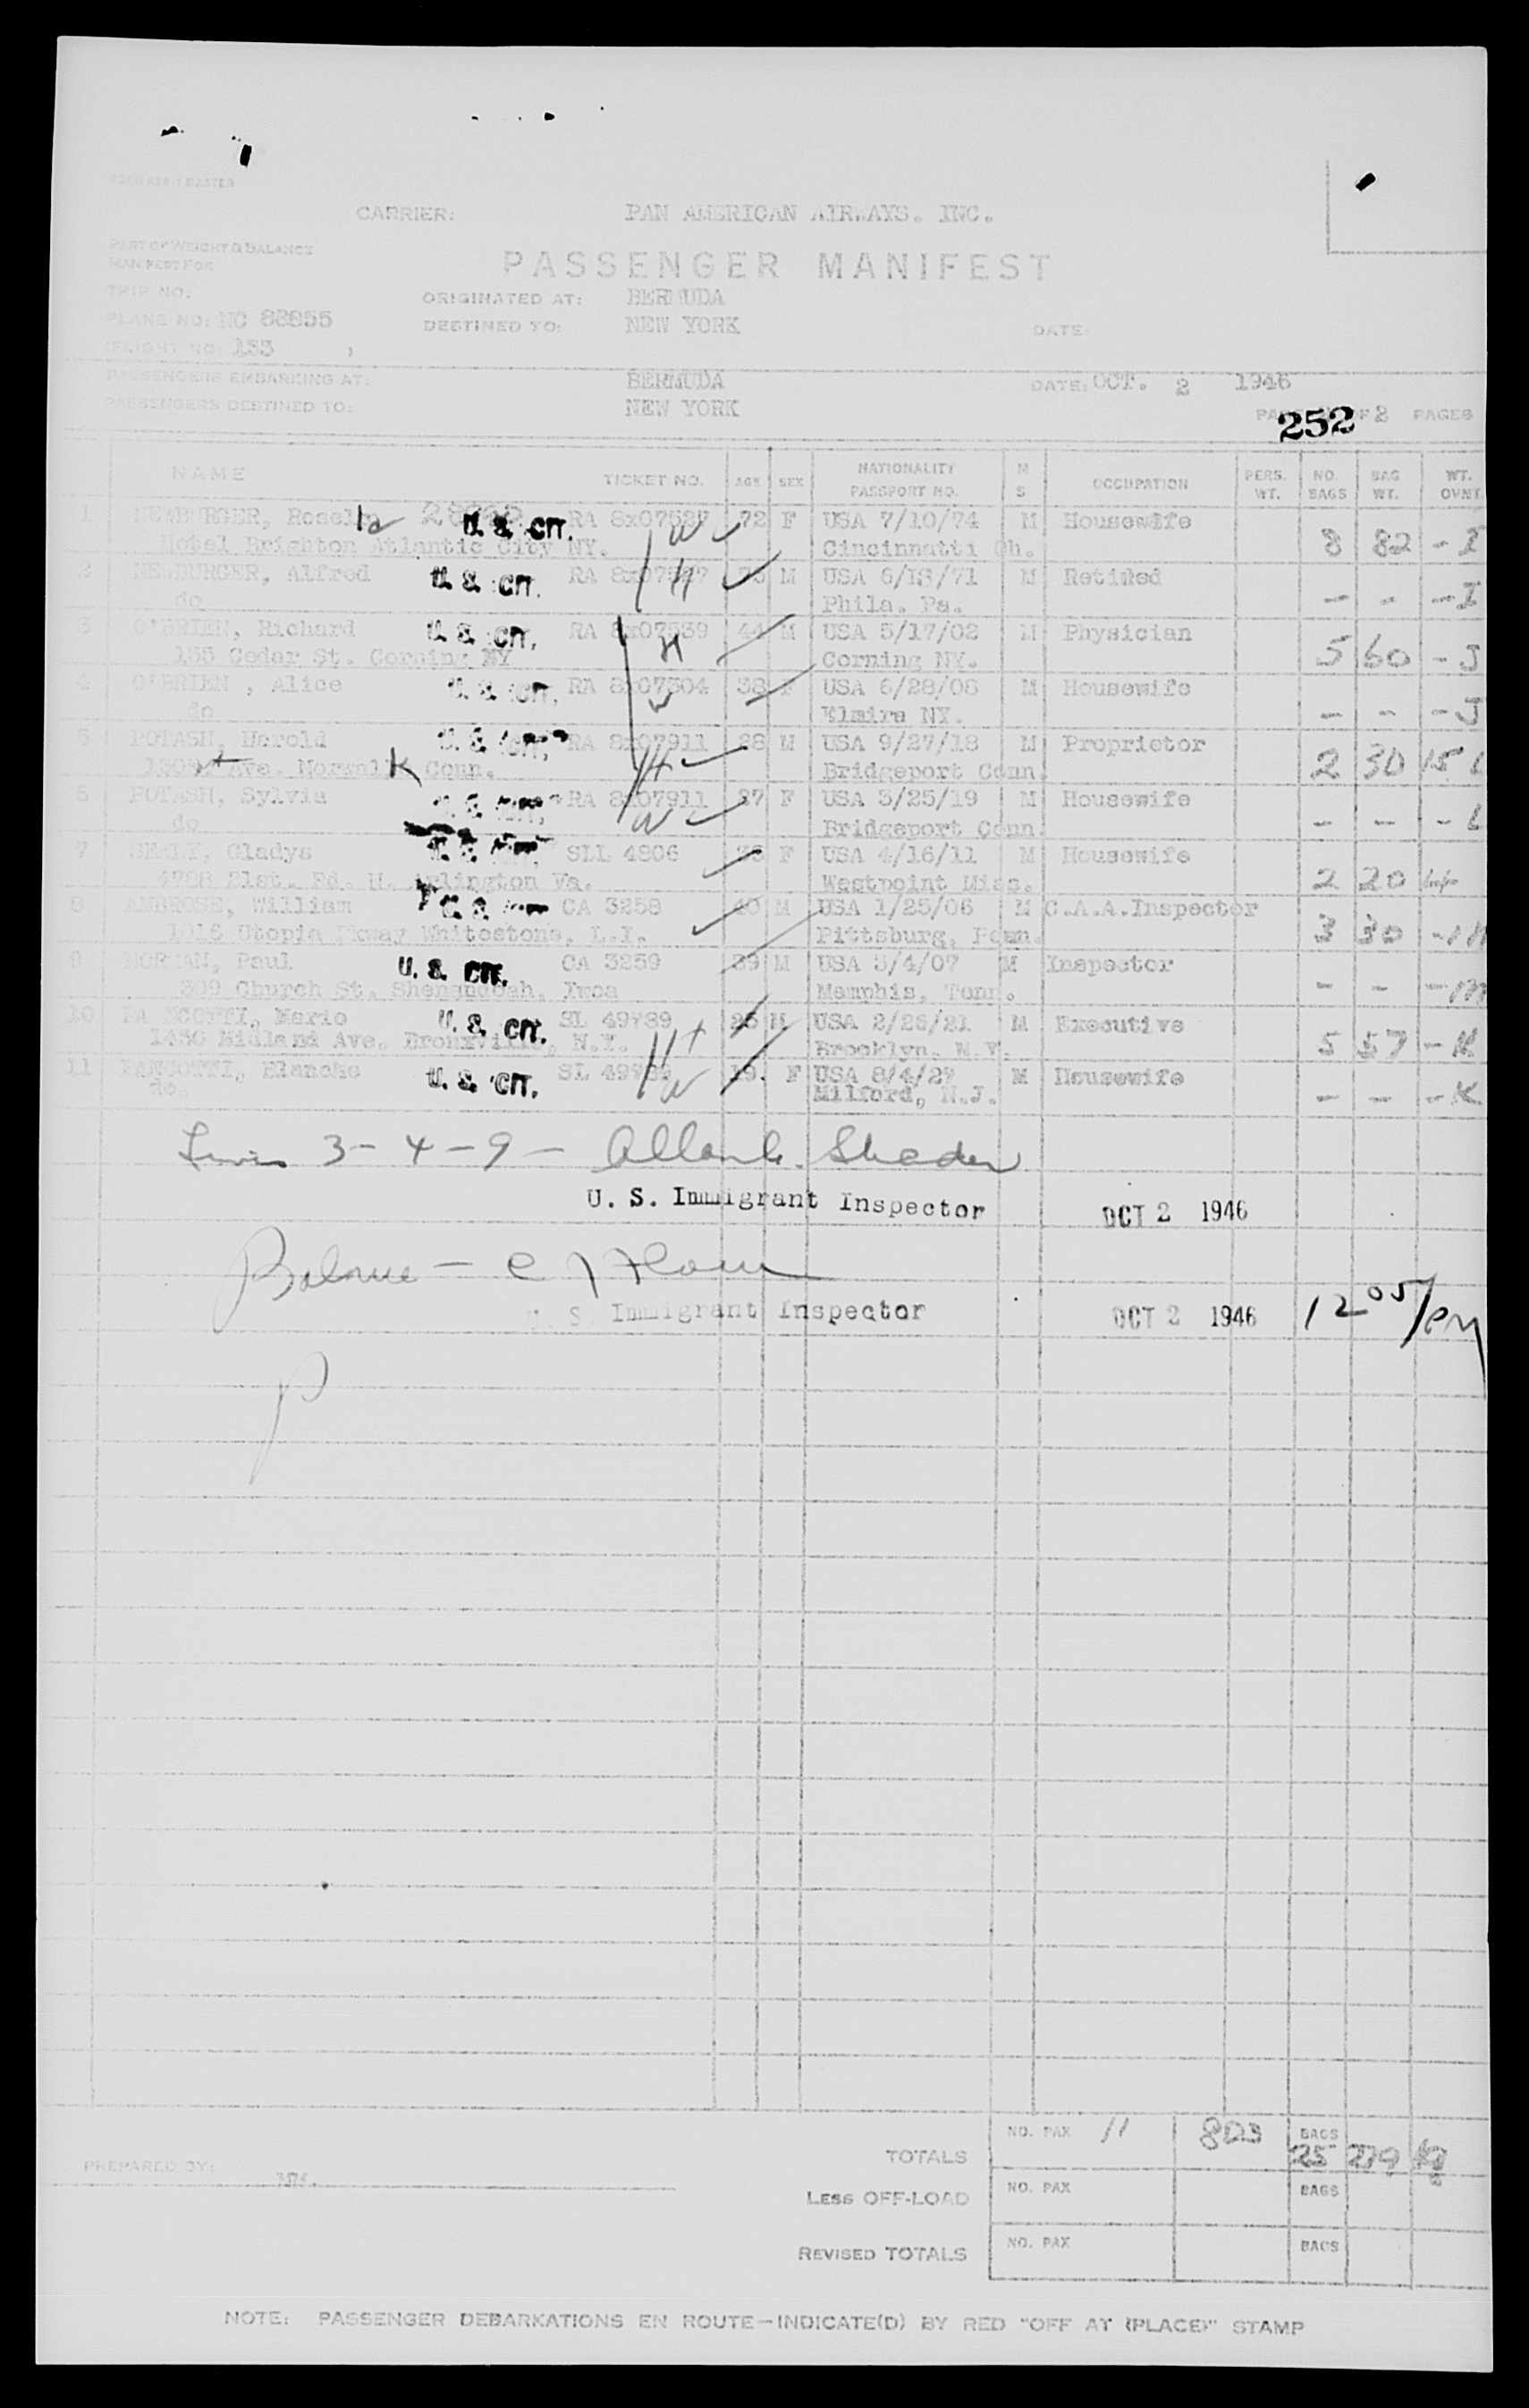 CARRIER: PAN AMERICAN AIRWAYS. INC.
PART OF WEIGHT & BALANCE
MANIFEST FOR
PASSENGER MANIFEST
TRIP NO.
ORIGINATED AT: BERMUDA
PLANE NO: NC 88855
DESTINED TO: NEW YORK
DATE:
FLIGHT NO: 153
PASSENGERS EMBARKING AT: BERMUDA DATE: OCT. 2 1946
PASSENGERS DESTINED TO: NEW YORK
252 OF 2 PAGES
NAME TICKET NO. AGE SEX NATIONALITY PASSPORT NO. M S OCCUPATION PERS. WT. NO. BAGS BAG WT. WT. OVNT
1 NEWBURGER, Roselyn U. S. CIT. RA 8x07527 72 F USA 7/10/74 M Housewife 8 82 - I
Hotel Brighton Atlantic City NY. W Cincinnatti Oh.
2 NEWBURGER, Alfred U. S. CIT. RA M USA M Retired - - - I
do H Phila. Pa.
3 O'BRIEN, Richard U. S. CIT. RA 8x07539 44 M USA 5/17/02 M Physician 5 60 - J
155 Cedar St. Corning NY H Corning NY.
4 O'BRIEN, Alice U. S. CIT. RA 8x07304 38 F USA 6/28/08 M Housewife - - - J
do W Elmira NY.
5 POTASH, Harold U. S. CIT. RA 8x07911 28 M USA 9/27/18 M Proprietor 2 30 15 L
Ave. Norwalk Conn. H Bridgeport Conn.
6 POTASH, Sylvia RA 8x07911 27 F USA 3/25/19 M Housewife - - - L
do W Bridgeport Conn.
7 Gladys SLL 4806 F USA 4/16/11 M Housewife 2 20
21st. Rd. N. Arlington Va. Westpoint Miss.
8 AMBROSE, William CA 3258 40 M USA 1/25/06 M C.A.A.Inspector 3 30
Utopia Pkway Whitestone, L.I. Pittsburg, Penn.
9 Paul U. S. CIT. CA 3259 39 M USA 3/4/07 M Inspector - - - M
309 Church St. Shenandoah, Iowa Memphis, Tenn.
10 Mario U. S. CIT. SL 49789 25 M USA 2/26/21 M Executive 5 57 - K
Midland Ave. Bronxville, N.Y. H Brooklyn. N.Y.
11 Blanche U. S. CIT. SL 19. F USA 8/4/27 M Housewife - - - K
do. W Milford, N.J.
3 - 4 - 9 -
U. S. Immigrant Inspector OCT 2 1946
Balance -
U. S. Immigrant Inspector OCT 2 1946 12 05/PM
TOTALS NO. PAX 11 BAGS 25 279
PREPARED BY:
LESS OFF-LOAD NO. PAX BAGS
REVISED TOTALS NO. PAX BAGS
NOTE: PASSENGER DEBARKATIONS EN ROUTE—INDICATE(D) BY RED "OFF AT (PLACE)" STAMP